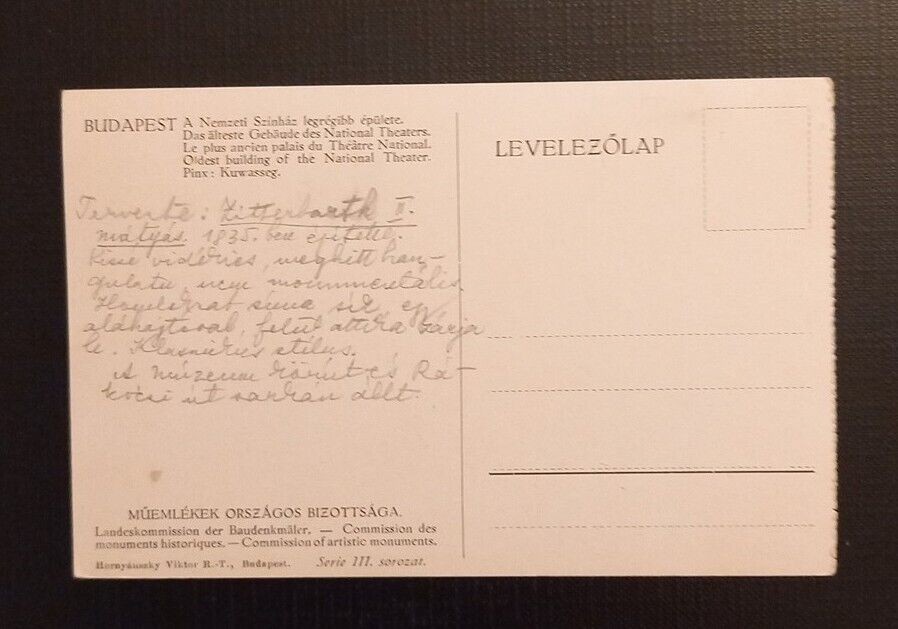 BUDAPEST A Nemzeti Szinház legrégibb épülete.
Das älteste Gebäude des National Theaters.
Le plus ancien palais du Théâtre National.
Oldest building of the National Theater.
Pinx: Kuwasseg.
Tervezte: Zitterbarth II.
Mátyás. 1835. ben építette.
Kissé vidékies, meghitt han-
gulatu, nem monumentális.
sima
felül attika zárja
le. Klasszikus stílus.
A múzeum körút és Rá-
kóczi út sarkán állt.
LEVELEZŐLAP
MŰEMLÉKEK ORSZÁGOS BIZOTTSÁGA.
Landeskommission der Baudenkmäler. — Commission des
monuments historiques. — Commission of artistic monuments.
Hornyánszky Viktor R.-T., Budapest. Serie III. sorozat.